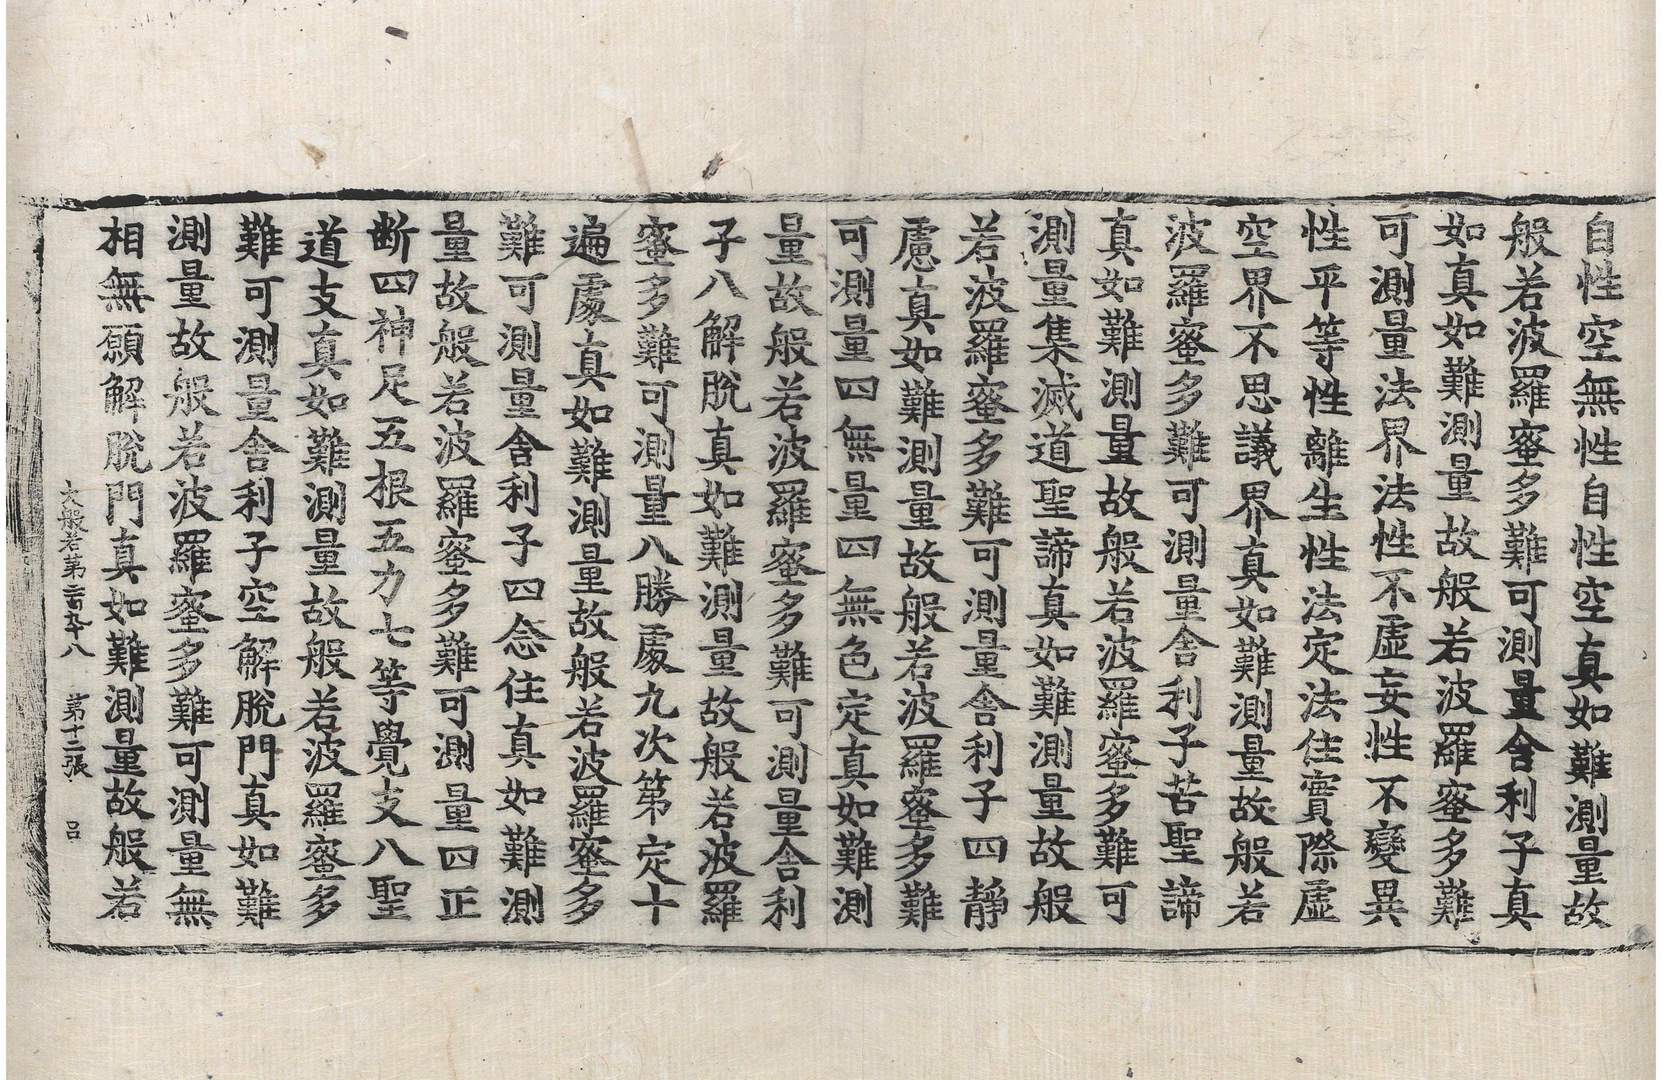 自性空無性自性空真如難測量故
般若波羅蜜多難可測量舍利子真
如真如難測量故般若波羅蜜多難
可測量法界法性不虛妄性不變異
性平等性離生性法定法住實際虛
空界不思議界真如難測量故般若
波羅蜜多難可測量舍利子苦聖諦
真如難測量故般若波羅蜜多難可
測量集滅道聖諦真如難測量故般
若波羅蜜多難可測量舍利子四靜
慮真如難測量故般若波羅蜜多難
可測量四無量四無色定真如難測
量故般若波羅蜜多難可測量舍利
子八解脫真如難測量故般若波羅
蜜多難可測量八勝處九次第定十
遍處真如難測量故般若波羅蜜多
難可測量舍利子四念住真如難測
量故般若波羅蜜多難可測量四正
斷四神足五根五力七等覺支八聖
道支真如難測量故般若波羅蜜多
難可測量舍利子空解脫門真如難
測量故般若波羅蜜多難可測量無
相無願解脫門真如難測量故般若
大般若第二百九十八 第十二張 呂